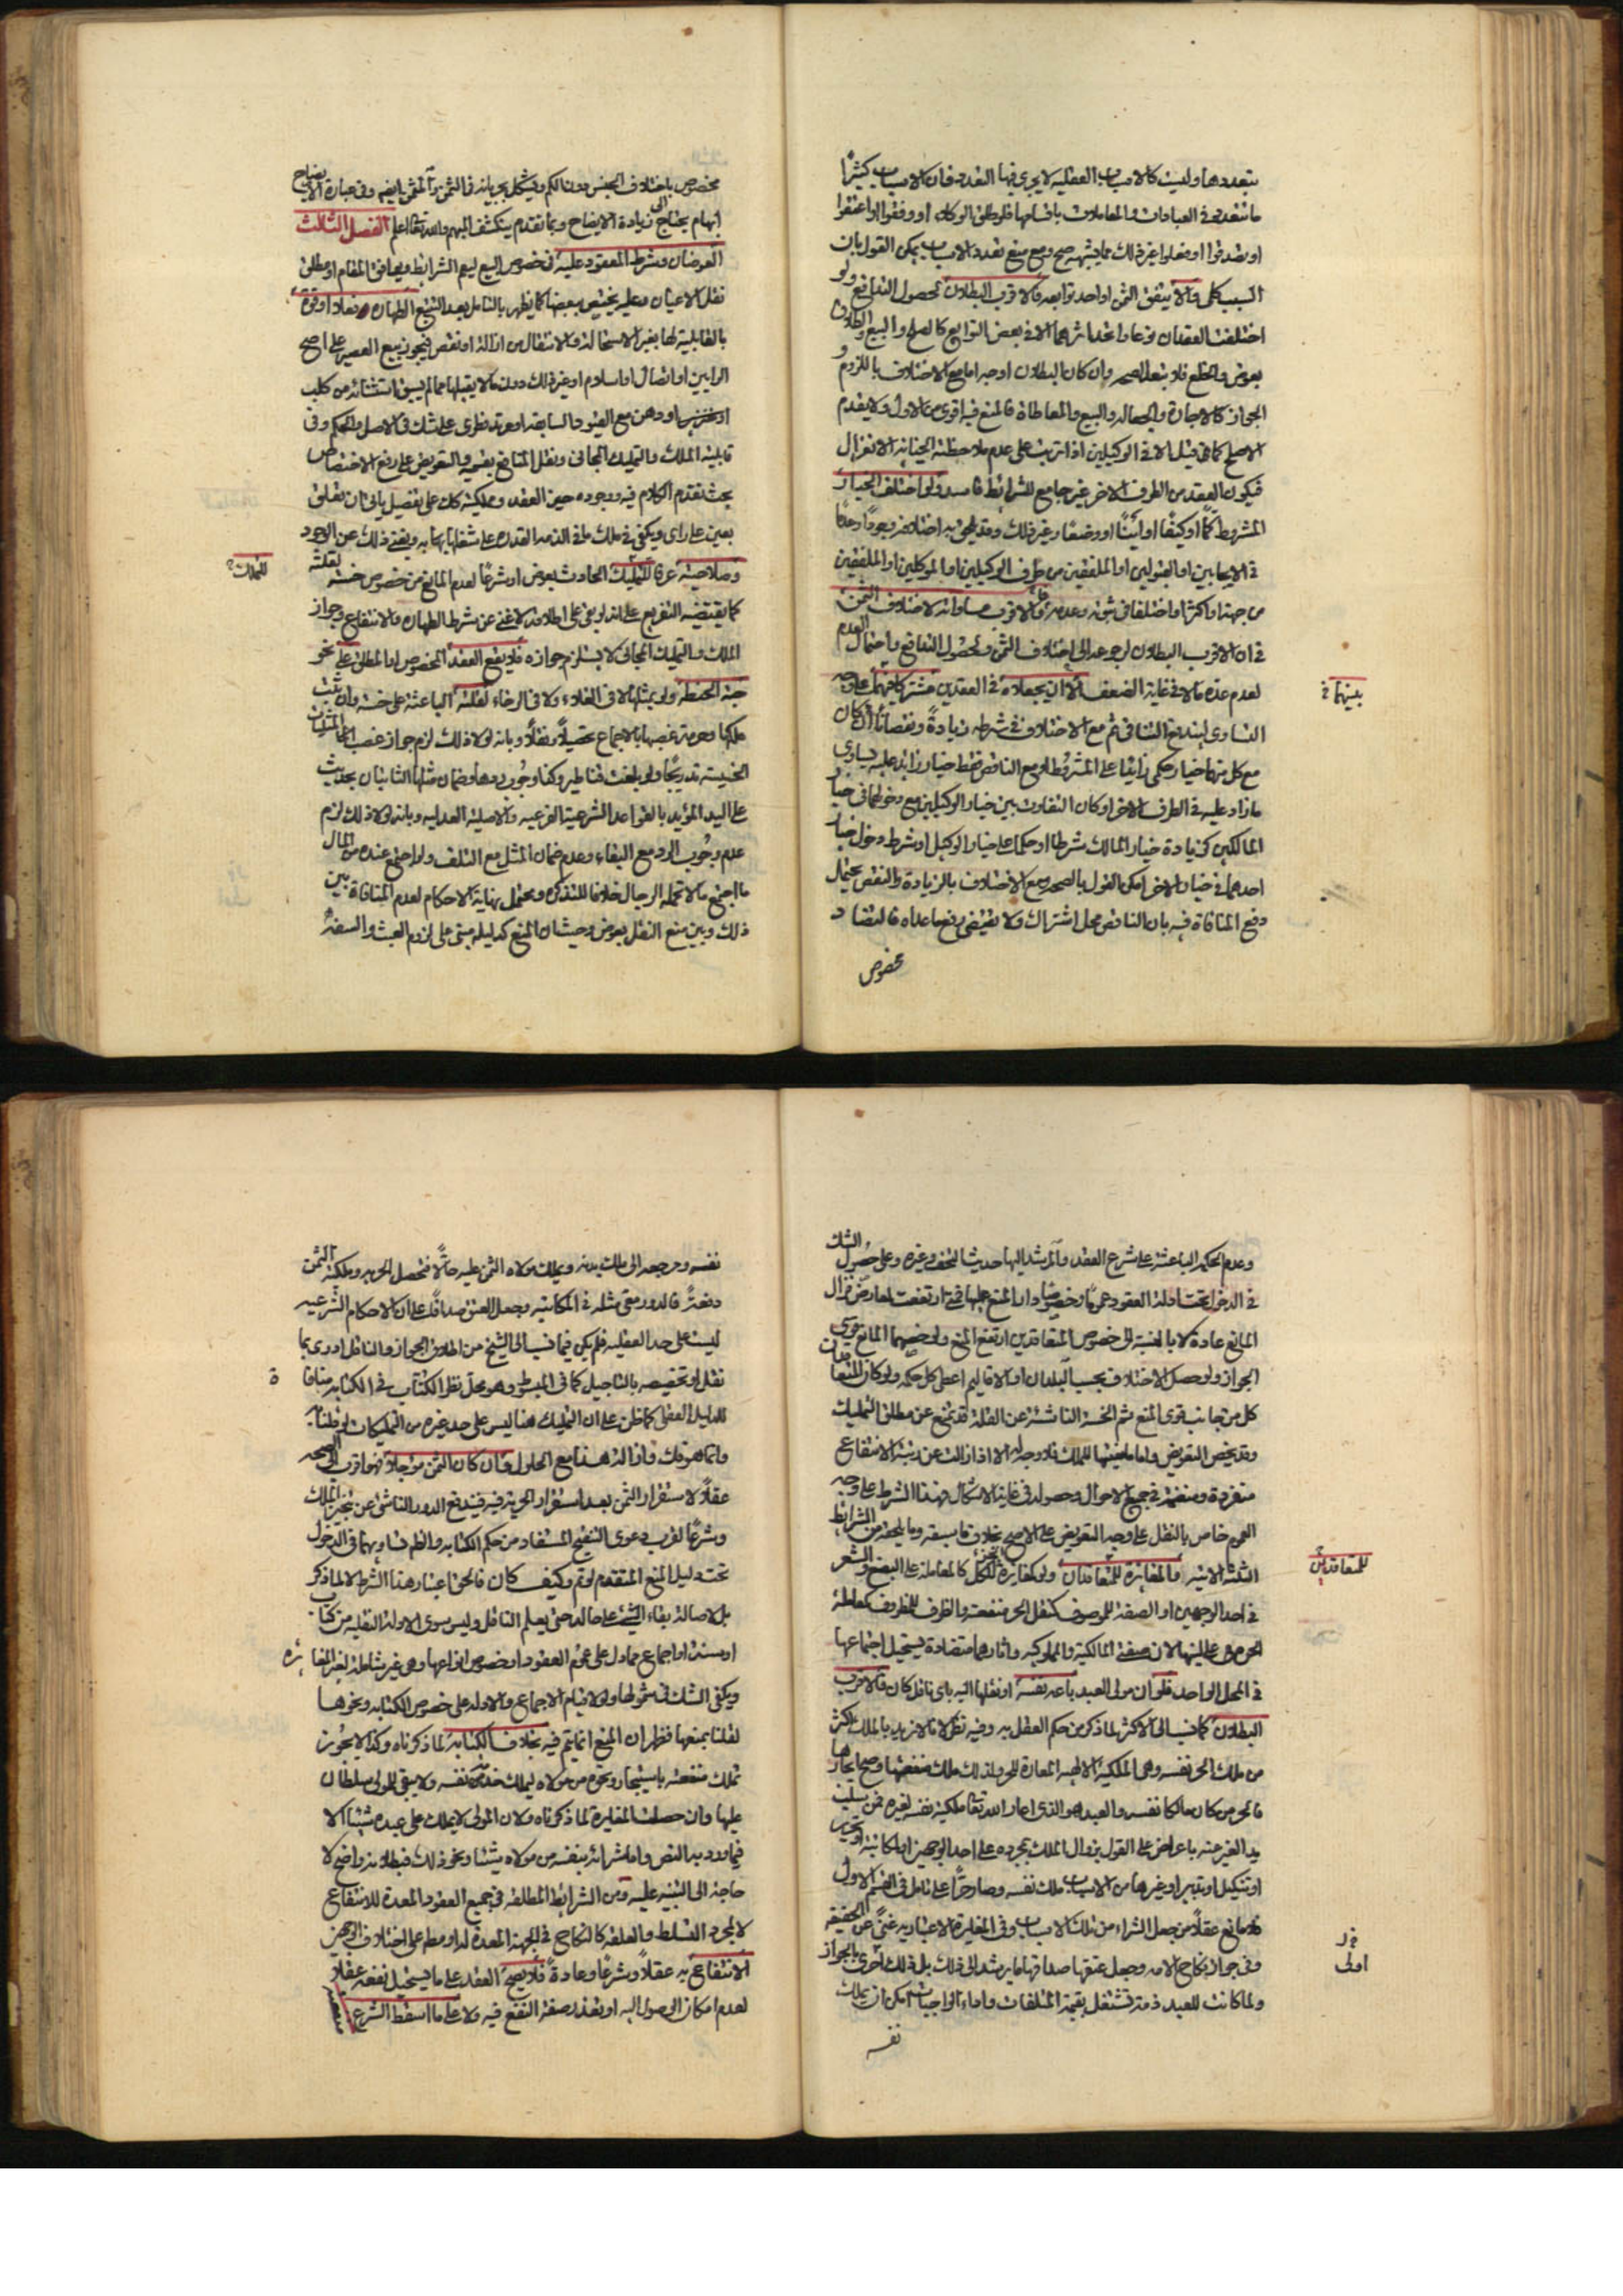 يتعددها وليست كالاسباب العقلية لا يجرى فيها التعدد فان الاسباب كثيرًا
ما تتعدد في العبادات والمعاملات باقسامها فلو طلق الوكلاء او وقفوا او اعتقوا
او تصدقوا او فعلوا غير ذلك مما يشبهه صح ومع منع تعدد الاسباب يمكن القول بان
السبب كل والا يتفق الثمن او احد توابعه فالاقرب البطلان لحصول التدافع ولو
اختلفت العقدان نوعا واتحد اثرهما الا في بعض التوابع كالصلح والبيع والطلاق
بعوض والخلع فلا يبعد الصحه وان كان البطلان اوجه اما مع الاختلاف باللزوم و
الجواز كالاجارة والجعاله والبيع والمعاطاة فالمنع فيه اقوى من الاول ولا يقدم
الاصلح كما قيل الا في الوكيلين اذا ترتب على عدم ملاحظته الخيانه الانعزال
فيكون العقد من الطرف الاخر غير جامع للشرائط فاسد ولو اختلف الخيار
المشروط كمًا او كيفًا او اينًا او وضعًا وغير ذلك وقد يلحق به اختلافه وجودًا وعدمًا
في الايجابين او القبولين او الملفقين من طرف الوكيلين او الموكلين او الملفقين
من جهته او اكثر او اختلفا في ثبوته وعدمه فالاقرب مساواته لاختلاف الثمن
في ان الاقرب البطلان لرجوعه الى اختلاف الثمن ولحصول التدافع واحتمال العدم
لعدم عده مالا في غاية الضعف الا ان يجعلاه في العقدين مشتركا فيهما على وجه
بينهما في
التساوى ليندفع التنافى ثم مع الاختلاف في شرطه زيادةً ونقصانًا ان كان
مع كل منهما خيار حكمى زايدًا على المشروط او مع الناقص فقط خيار زايد عليه يساوى
ما زاد عليه في الطرف الاخر او كان التفاوت بين خيار الوكيلين مع دخولهما في خيار
المالكين كزيادة خيار المالك شرطا او حكما على خيار الوكيل او شرط دخول خيار
احدهما في خيار الاخر امكن القول بالصحه ومع الاختلاف بالزيادة والنقص يحتمل
دفع المنافاة فيه بان الناقص محل اشتراك ولا يقتضى رفع ما عداه فالتضاد
مخصوص
مخصوص باختلاف الجنس دون الكم ويشكل بجريانه في الثمن والمثمن ايضا وفي عبارة الايضاح
ابهام يحتاج الى زيادة الايضاح وبما تقدم ينكشف المبهم والله تعالى اعلم الفصل الثالث
العوضان وشرط المعقود عليه في خصوص البيع ليعم الشرايط جميعا في المقام او مطلق
نقل الاعيان وعليه يختص ببعضها كما يظهر بالتامل بعد التتبع الطهاره فعلا او قوة
بالقابلية لها بغير الاستحالة والانتقال من ازالة او نقص فيجوز بيع العصير على اصح
الرايين او اتصال او اسلام او غير ذلك دون ما لا يقبلها مما لم يسبق استثنائه من كلب
او خنزير او دهن مع القيود السابقه او مرتد فطرى على شك في الاصل والحكم وفي
قابلية الملك والتمليك المجانى ونقل المنافع بقسميه والتعويض على رفع الاختصاص
بحث تقدم الكلام فيه ووجوده حين العقد ومملكيته كل على تفصيل ياتى ان تعلق
بعين على راى ويكفى في ملك ما في الذمه القدره على شغلها به ويغنى ذلك عن الوجود
وصلاحيته عرفا للتمليك الحادث بعوض او شرعًا لعدم المانع من خصوص خسته لقلته
للتملك
كما يقتضيه التفريع على انه لو بقى على اطلاقه لاغنى عن شرط الطهاره والانتفاع وجواز
الملك والتمليك المجانى لا يستلزم جوازه فلا يقع العقد المخصوص او المطلق على نحو
حبة الحنطه ولو بمثلها لا في الغلاء ولا في الرخاء لقلته الباعثة على خسته وان ثبت
ملكها وحرمة غصبها بالاجماع تحصيلًا ونقلًا وبانه لولا ذلك لزم جواز غصب اعلى المثمنات
الخسيسة تدريجًا ولو بلغت قناطير وكذا وجوب ردها وضمان مثلها الثابتان بحديث
على اليد المؤيد بالقواعد الشرعية الفرعيه والاصلية العدليه وبانه لولا ذلك لزم
عدم وجوب الرد مع البقاء وعدم ضمان المثل مع التلف ولو اجتمع عنده من المال
ما اجتمع مالا تحمله الرجال خلافا للتذكره ويحتمل نهاية الاحكام لعدم المنافاة بين
ذلك وبين منع النقل بعوض وحيث ان المنع كدليله مبنى على لزوم العبث والسفه
وعدم الحكمه الباعثة على شرع العقد والمرشد اليها حديث التحف وغيره وعلى حصول الشك
في الدخول تحت ادلة العقود عمومًا وخصوصًا دار المنع عليها فمتى ارتفعت لعارض فزال
المانع عادة كلا بالنسبة الى خصوص المتعاقدين ارتفع المنع ولو خصهما المانع قوى
الجواز ولو حصل الاختلاف بحسب البلدان او الاقاليم اعطى كل حكمه ولو كان المتعاقدان
كل من جانب قوى المنع ثم الخسة الناشئة عن القلة قد تمنع عن مطلق التمليك
وقد يخص التعويض واما ما نعيتها للملك فلا وجه له الا اذا زالت عن رتبة الانتفاع
منفردة ومنضمة في جميع الاحوال وحصوله في غاية الاشكال وهذا الشرط على وجه
العموم خاص بالنقل على وجه التعويض على الاصح بخلاف ما سبقه وما يلحقه من الشرائط
الثلثة الاتيه والمغايرة للمتعاقدان ولو كمغايرة الجزء للكل كالمعاملة على البضع والشعر
للمتعاقدين
في احد الوجهين او الصفة للموصوف كنقل الحر منفعته والظرف للمظروف كمعاملة
الحر من عليتها لان صفتى المالكية والمملوكيه واثارهما متضادة يستحيل اجتماعها
في المحل الواحد فلو ان مولى العبد باعه نفسه او نقلها اليه باى ناقل كان فالاقرب
البطلان كما نسب الى الاكثر لما ذكر من حكم العقل به وفيه نظر لانا لا نريد بالملك اكثر
من ملك الحر نفسه وهى الملكية الالهيه المعارة للحر ولذلك ملك منفعتها وصح ايجارها
فالحر من كان مالكا نفسه والعبد هو الذى اعار الله تعالى ملكية نفسه لغيره فمن سلبت
يد الغير عنه باعراض على القول بزوال الملك بمجرده على احد الوجهين او بمكاتبة او تحرير
او تنكيل او تدبير او غيرها من الاسباب ملك نفسه وصار حرًا على تامل في القسم الاول
فلا مانع عقلًا من جعل الشراء من تلك الاسباب وفي المغايرة الاعتباريه غنى عن الحقيقيه
وفي جواز نكاح الامه وجعل عتقها صداقها ما يرشد الى ذلك بل ذلك احرى بالجواز
اولى
ولما كانت للعبد ذمة تشتغل بقيمة المتلفات واداء الواجبات امكن ان يملك
نفسه
نفسه ومرجعه الى ملك بدنه ويملك مولاه الثمن عليه حالًا فتحصل الحريه وملكية الثمن
دفعةً فالدور معى مثله في المكاتبه وجعل العتق صداقًا على ان الاحكام الشرعيه
ليست على حد العقليه فلم يكن فيما نسب الى الشيخ من اطلاق الجواز والناقل ادرى بما
نقل او تخصيصه بالتاجيل كما في المبسوط وهو محل نظر الكتاب في الكتابه منافاة
للدليل العقلى كما ظن على ان التمليك هنا ليس على حد غيره من التمليكات
وانما هو فك وازالة هذا مع الحلول وان كان الثمن مؤجلا فهو اقرب الى الصحه
عقلًا لاستقرار الثمن بعد استقرار الحرية فيه فيندفع الدور الناشئ عن تنجيز الملك
وشرعًا لقرب دعوى التنقيح المستفاد من حكم الكتابه والظهر تساويهما في الدخول
تحت دليل المنع المتقدم لو تم وكيف كان فالحق اعتبار هذا الشرط لا لما ذكر
بل لاصالة بقاء الشئ على حاله حتى يعلم الناقل وليس سوى الادلة النقليه من كتاب
او سنة او اجماع مما دل على عموم العقود او خصوص انواعها وهى غير شاملة لغير المغايره
ويكفى الشك في شمولها ولولا قيام الاجماع والادله على خصوص الكتابه ونحوها
لقلنا بمنعها فظهر ان المنع انما يتم فيه بخلاف الكتابه لما ذكرناه وكذا لا يجوز
تملك منفعته باستيجار ونحوه من مولاه ليملك خدمة نفسه ولا يبقى للمولى سلطان
عليها وان حصلت المغايرة لما ذكرناه ولان المولى لا يملك على عبده شيئا الا
فيما ورد به النص واما شرائه بنفسه من مولاه شيئا ونحو ذلك فبطلانه واضح لا
حاجة الى التنبيه عليه ومن الشرائط المطلقه في جميع العقود المعدة للانتفاع
لا لمجرد التسلط والعلقه كالنكاح في الجهة المعدة له او مطم على اختلاف الوجهين
الانتفاع به عقلًا وشرعًا وعادةً فلا يصح العقد على ما يستحيل نفعه عقلا
لعدم امكان الوصول اليه او تعذر صفة النفع فيه ولا على ما اسقط الشرع